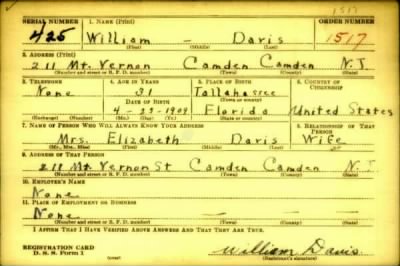 1517
SERIAL NUMBER 1. NAME (Print) ORDER NUMBER
425 William - Davis 1517
(First) (Middle) (Last)
2. ADDRESS (Print)
211 Mt. Vernon Camden Camden N.J.
(Number and street or R. F. D. number) (Town) (County) (State)
3. TELEPHONE 4. AGE IN YEARS 5. PLACE OF BIRTH 6. COUNTRY OF CITIZENSHIP
None 31 Tallahassee
DATE OF BIRTH (Town or county)
1909 Florida United States
(Exchange) (Number) (Mo.) (Day) (Yr.) (State or country)
7. NAME OF PERSON WHO WILL ALWAYS KNOW YOUR ADDRESS 8. RELATIONSHIP OF THAT PERSON
Mrs. Elizabeth Davis Wife
(Mr., Mrs., Miss) (First) (Middle) (Last)
9. ADDRESS OF THAT PERSON
211 Mt. Vernon St Camden Camden N.J.
(Number and street or R. F. D. number) (Town) (County) (State)
10. EMPLOYER'S NAME
None
11. PLACE OF EMPLOYMENT OR BUSINESS
None — — —
(Number and street or R. F. D. number) (Town) (County) (State)
I AFFIRM THAT I HAVE VERIFIED ABOVE ANSWERS AND THAT THEY ARE TRUE.
REGISTRATION CARD
D. S. S. Form 1 (over) William Davis
(Registrant's signature)